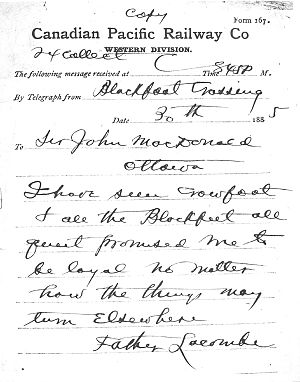 Copy
Form 167.
Canadian Pacific Railway Co
WESTERN DIVISION.
24 Collect
The following message received at C Time 848P M.
By Telegraph from Blackfoot Crossing
Date 30th 1885
To Sir John MacDonald
Ottawa
I have seen Crowfoot
I all the Blackfeet all
quiet promised me to
be loyal no matter
how the things may
turn Elsewhere
Father Lacombe